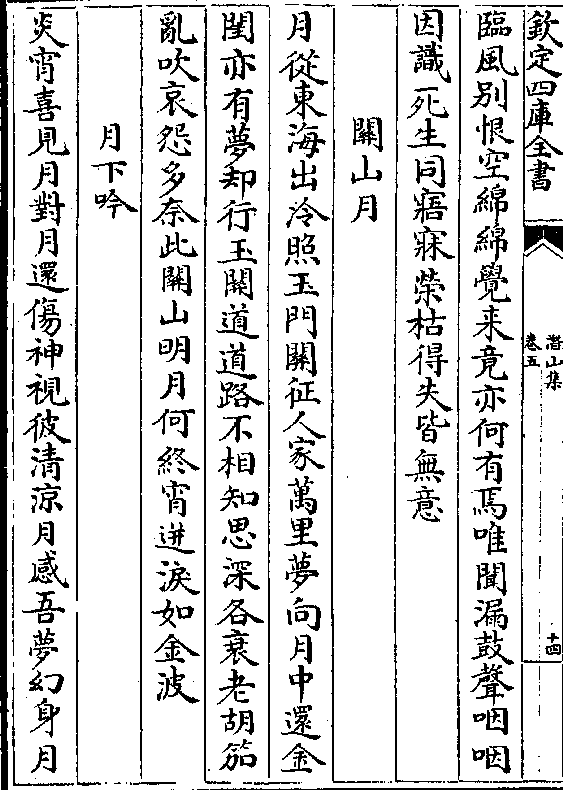 欽定四庫全書
潛山集
卷五
十四
臨風别恨空綿綿覺来竟亦何有焉唯聞漏鼓聲咽咽
因識死生同寤寐榮枯得失皆無意
關山月
月從東海出冷照玉門關征人家萬里夢向月中還金
閨亦有夢却行玉關道道路不相知思深各衰老胡笳
亂吹哀怨多奈此關山明月何終宵迸淚如金波
月下吟
炎宵喜見月對月還傷神視彼清涼月感吾夢幻身月